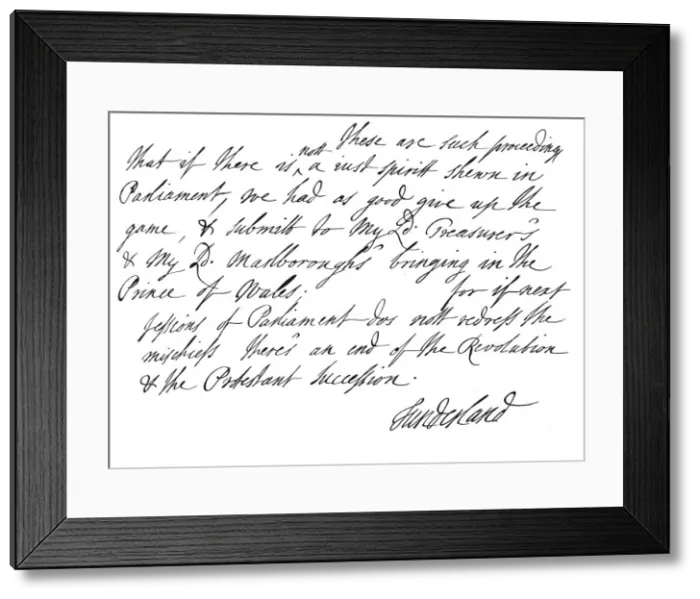 These are such proceeding
that if there is not a iust spiritt shewn in
Parliament, we had as good give up the
game, & submitt to My Ld. Treasurer's
& My Ld. Marlborough's bringing in the
Prince of Wales; for if next
sessions of Parliament dos nott redress the
mischiefs there's an end of the Revolution
& the Protestant Succession.
Sunderland